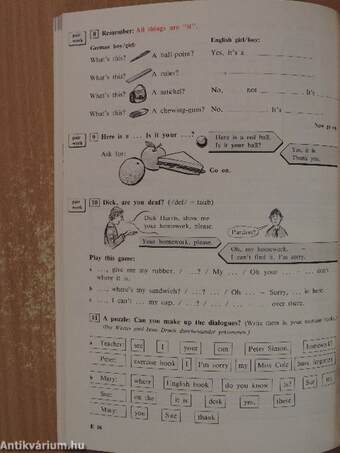 pair work
8 Remember: All things are "it".
German boy/girl: English girl/boy:
What's this? A ball-point? Yes, it's a
What's this? A ruler?
What's this? A satchel? No, not It's
What's this? A chewing-gum? No, It's
Now go on.
pair work
9 Here is a ... Is it your ...?
Here is a red ball.
Is it your ball?
Yes, it is.
Thank you.
Ask for:
Go on.
pair work
10 Dick, are you deaf? (/def/ = taub)
Dick Harris, show me
your homework, please.
Pardon?
Your homework, please.
Oh, my homework. –
I can't find it. I'm sorry.
Play this game:
a ..., give me my rubber. / ...? / My ... / Oh your ... don't
where it is.
b ... where's my sandwich? / ...? / ... / Oh ... – Sorry, ... is here.
c ... I can't ... my cap. / ...? / ... / ... over there.
11 A puzzle: Can you make up the dialogues?
a Teacher: see I your can Peter Simon, homework?
Peter: exercise book I I'm sorry my Miss Cole
b Mary: where English book do you know is? Sue my
Sue: on the it is desk yes, there
Mary: you Sue thank
E 16
Antikvárium.hu